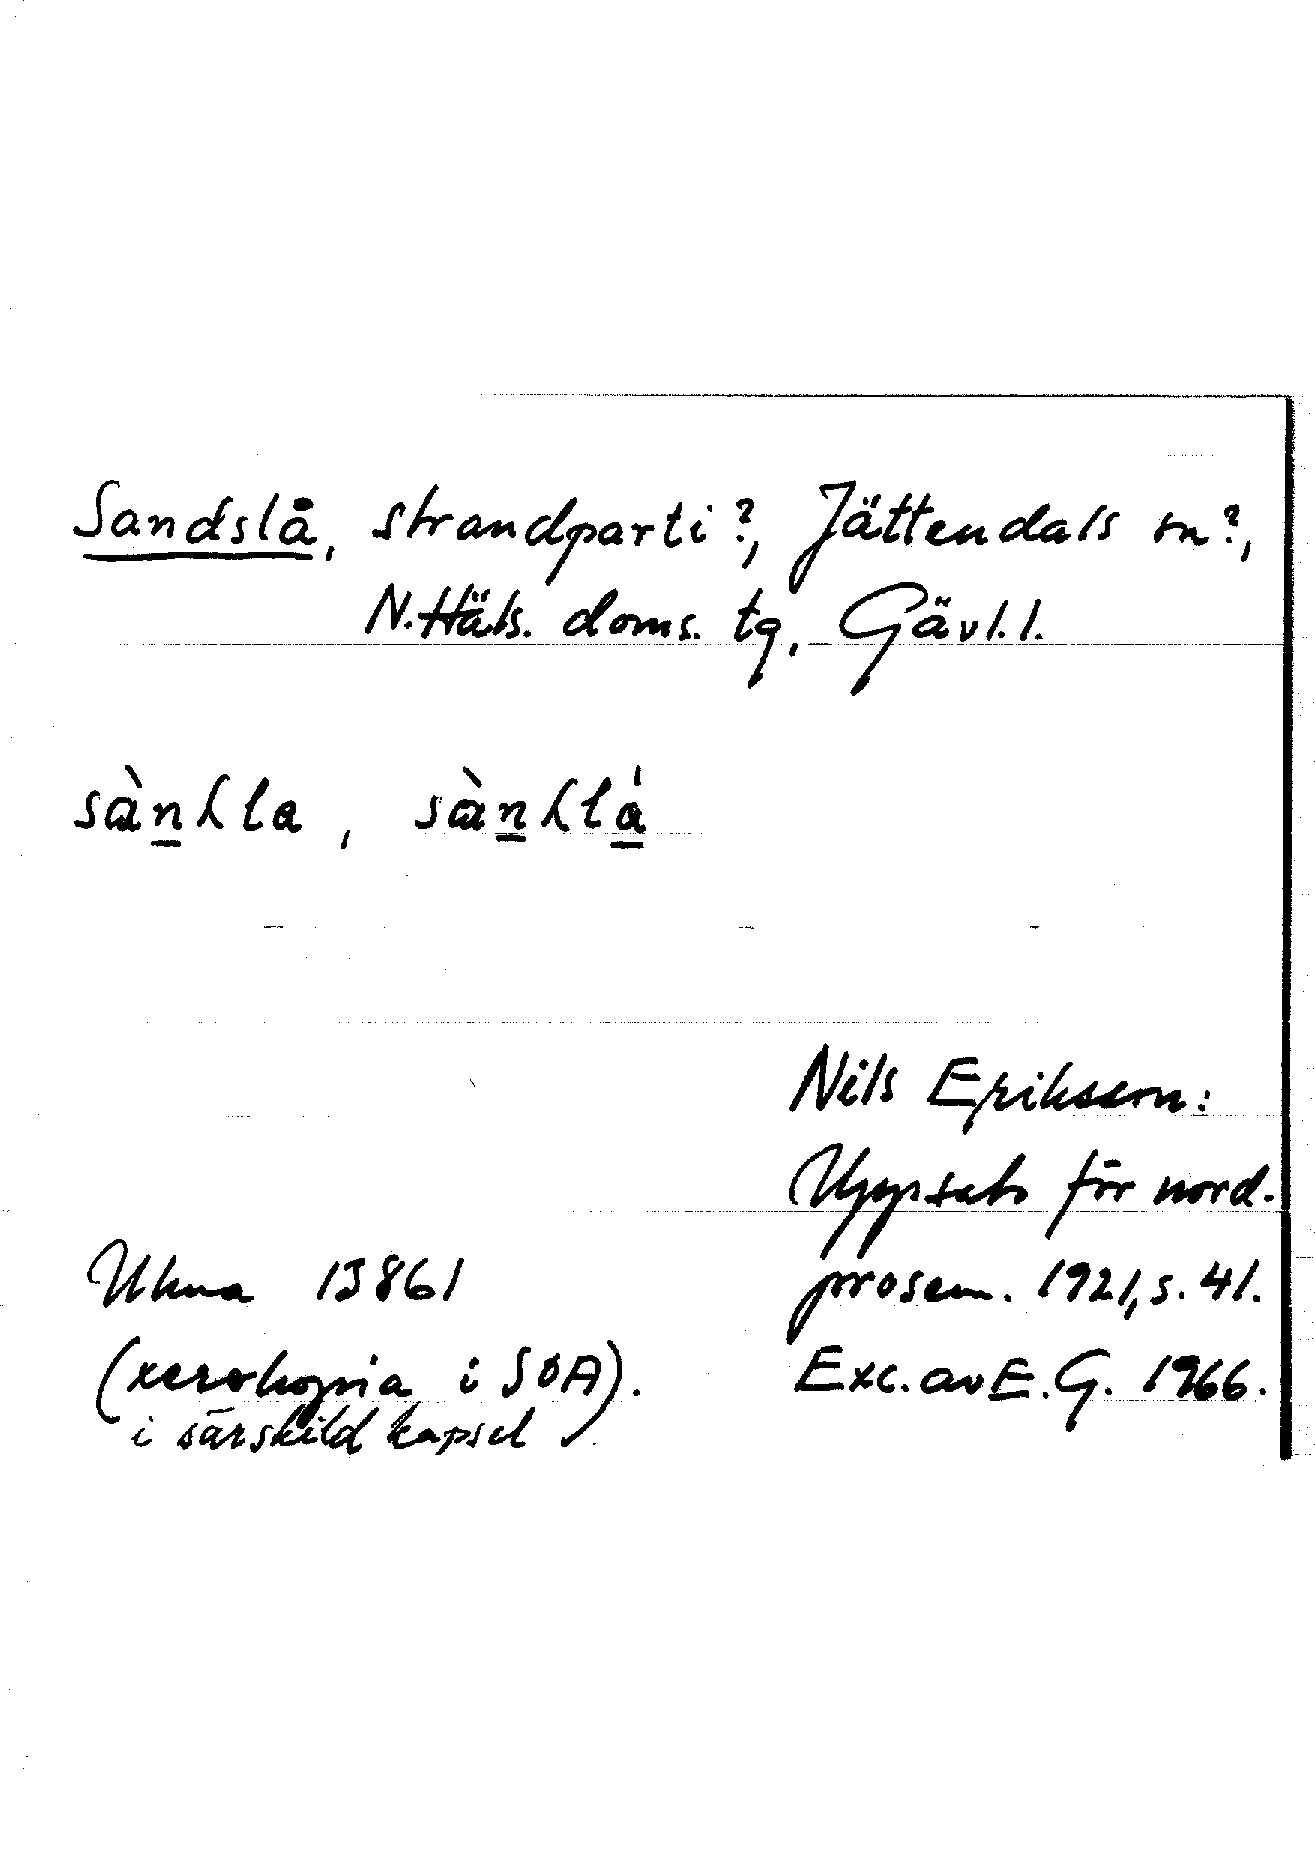 Sandslå, strandparti?, Jättendals sn?,
N.Häls. doms. tg, Gävl.l.
sàn̲ʎla, sàn̲ʎlá̲
Nils Eriksson:
Uppsats för nord.
Ukna 13861 prosem. 1921, s. 41.
(xerokopia i SOA). Exc. av E.G. 1966.
i särskild kapsel